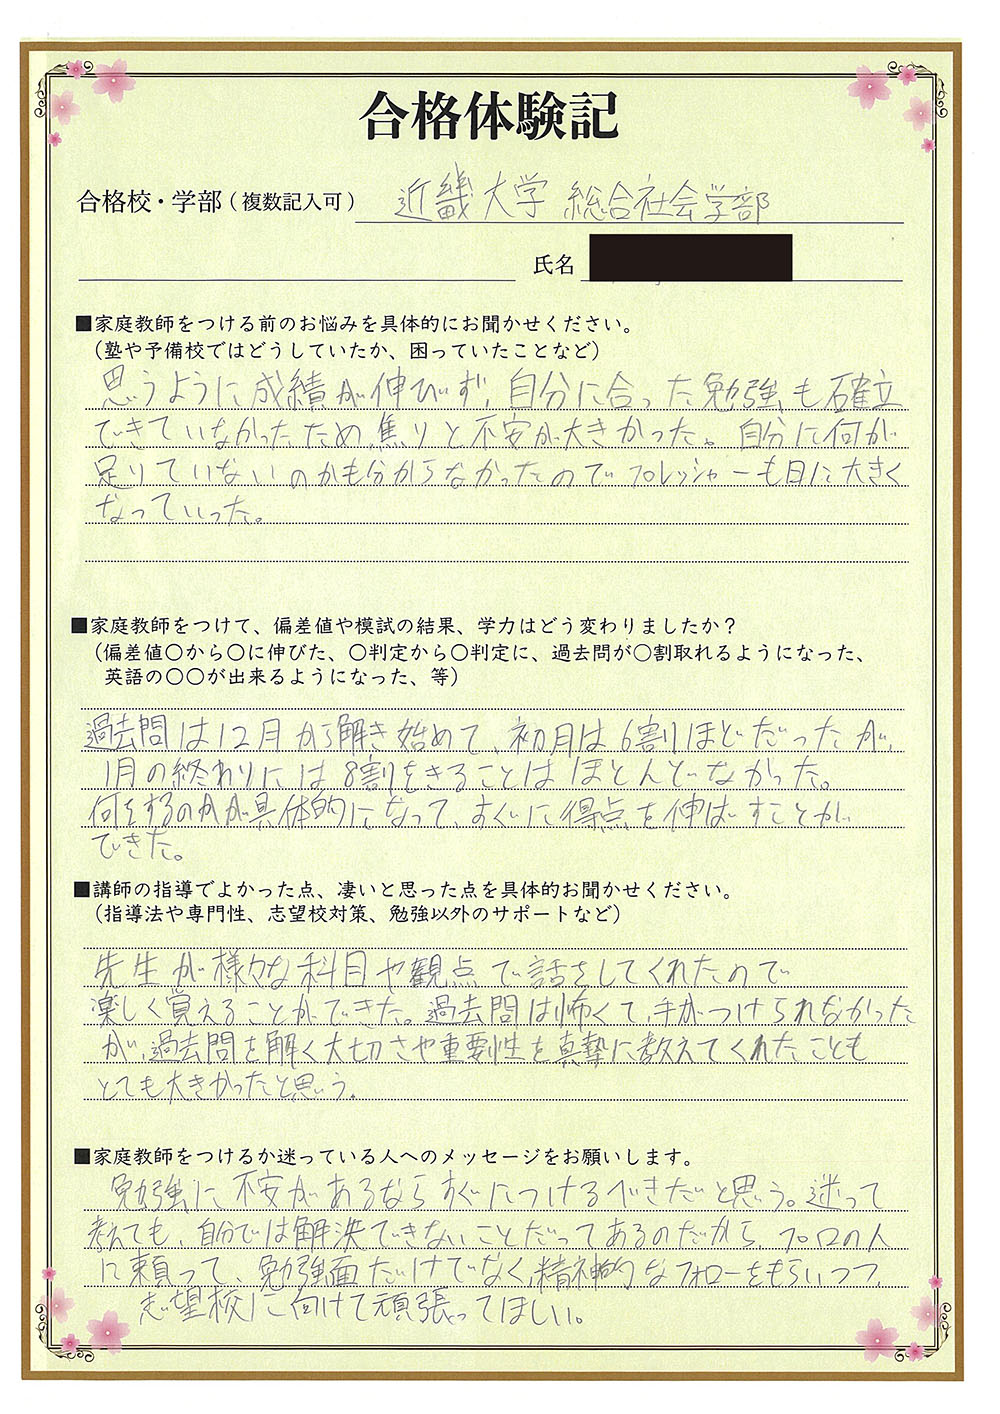 合格体験記
合格校・学部（複数記入可） 近畿大学 総合社会学部
氏名
■家庭教師をつける前のお悩みを具体的にお聞かせください。
（塾や予備校ではどうしていたか、困っていたことなど）
思うように成績が伸びず、自分に合った勉強も確立
できていなかったため、焦りと不安が大きかった。自分に何が
足りていないのかも分からなかったのでプレッシャーも日に大きく
なっていった。
■家庭教師をつけて、偏差値や模試の結果、学力はどう変わりましたか？
（偏差値〇から〇に伸びた、〇判定から〇判定に、過去問が〇割取れるようになった、
英語の〇〇が出来るようになった、等）
過去問は12月から解き始めて、初月は6割ほどだったが、
1月の終わりには8割をきることはほとんどなかった。
何をするのかが具体的になって、すぐに得点を伸ばすことが
できた。
■講師の指導でよかった点、凄いと思った点を具体的お聞かせください。
（指導法や専門性、志望校対策、勉強以外のサポートなど）
先生が様々な科目や観点で話をしてくれたので
楽しく覚えることができた。過去問は怖くて、手がつけられなかった
が、過去問を解く大切さや重要性を真摯に教えてくれたことも
とても大きかったと思う。
■家庭教師をつけるか迷っている人へのメッセージをお願いします。
勉強に不安があるならすぐにつけるべきだと思う。迷って
考えても、自分では解決できないことだってあるのだから、プロの人
に頼って、勉強面だけでなく、精神的なフォローをもらいつつ、
志望校に向けて頑張ってほしい。